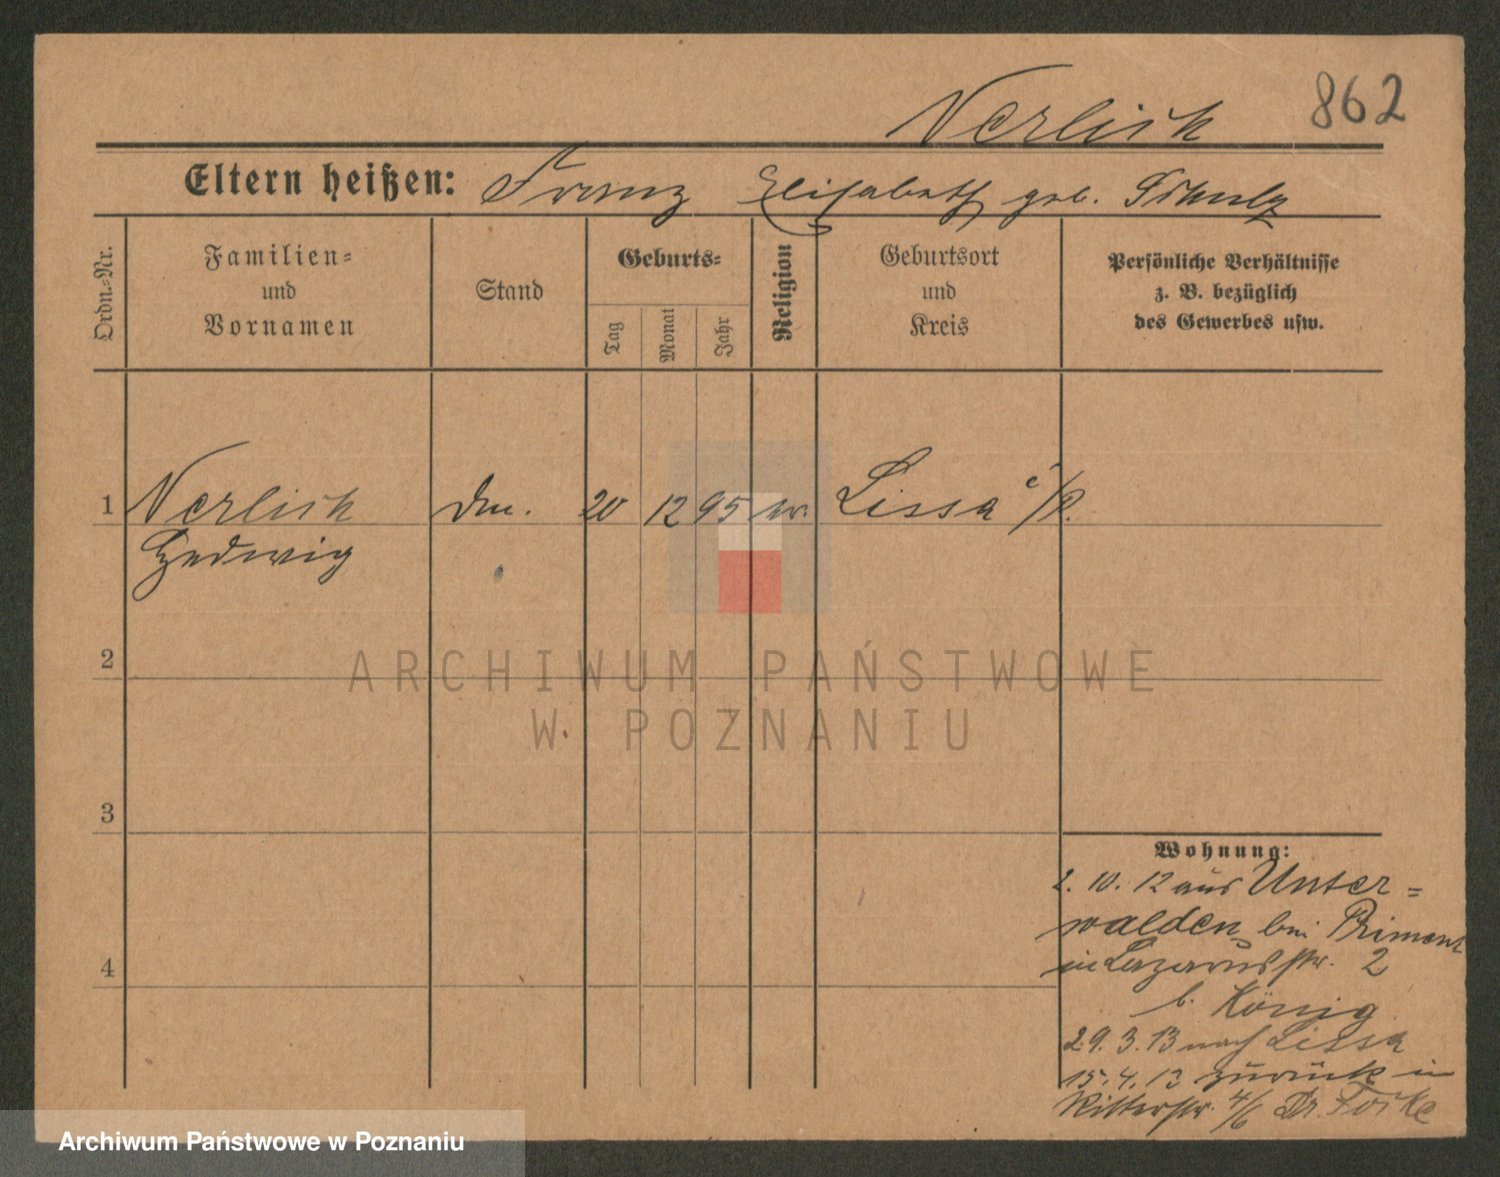 862
Nerlich
Eltern heißen: Franz Elisabeth geb. Schulz
Ordn.-Nr.
Familien-
und
Vornamen
Stand
Geburts-
Tag
Monat
Jahr
Religion
Geburtsort
und
Kreis
Persönliche Verhältnisse
z. B. bezüglich
des Gewerbes usw.
1 Nerlich 20 12 95 Lissa i/P.
Hedwig
2
ARCHIWUM PAŃSTWOWE
W POZNANIU
3
4
Wohnung:
2. 10. 12 aus Unter=
walden bei Priment
in Lazarusstr. 2
b. König
29. 3. 13 nach Lissa
15. 4. 13 zurück in
Ritterstr. 4/6 Dr.
Archiwum Państwowe w Poznaniu